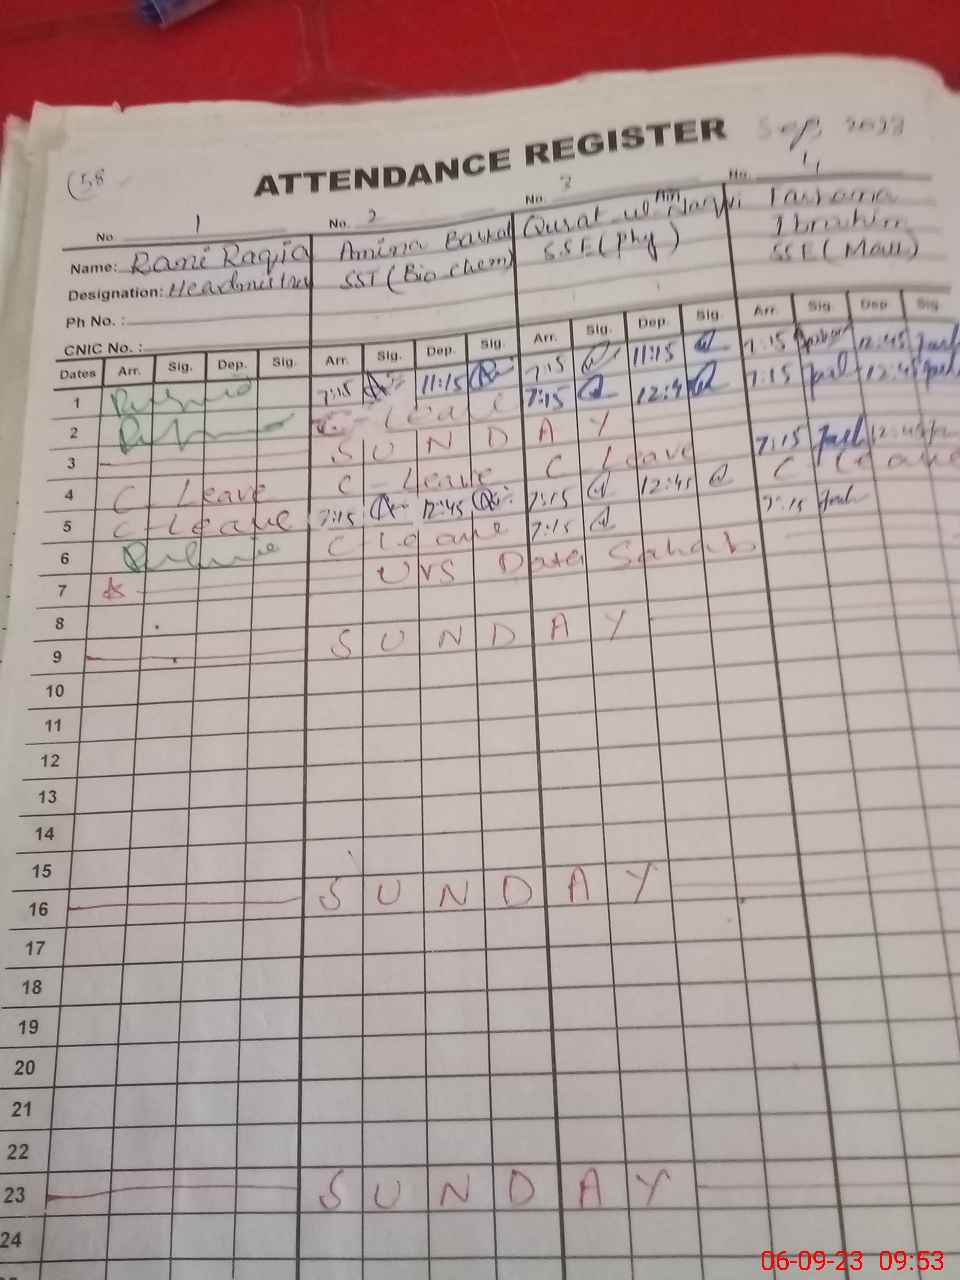 58
ATTENDANCE REGISTER Sep 2023
No. 1 No. 2 No. 3 No. 4
Name: Rani Raqia Amina Qurat ul Ain
Designation: SST (Bio chem) S.S.E (Phy)
Ibrahim
SSE
Ph No. :
CNIC No. :
Dates Arr. Sig. Dep. Sig. Arr. Sig. Dep. Sig. Arr. Sig. Dep. Sig. Arr. Sig. Dep. Sig.
1 7:15 11:15 7:15 11:15 7:15 12:45
2 C - Leave 7:15 12:4 7:15 12:45
3 S U N D A Y
4 C Leave C - Leave C Leave 7:15 12:45
5 C - Leave 7:15 12:45 7:15 12:45 C Leave
6 C Leave 7:15 7:15
7 Urs Data Sahab
8
9 S U N D A Y
10
11
12
13
14
15
16 S U N D A Y
17
18
19
20
21
22
23 S U N D A Y
24
06-09-23 09:53